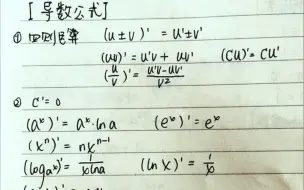 [导数公式]
① 四则运算 (u±v)' = u'±v'
(uv)' = u'v + uv' (Cu)' = Cu'
(u/v)' = (u'v-uv')/v²
② C' = 0
(aˣ)' = aˣ·lna (eˣ)' = eˣ
(xⁿ)' = nxⁿ⁻¹
(logₐx)' = 1/(xlna) (lnx)' = 1/x